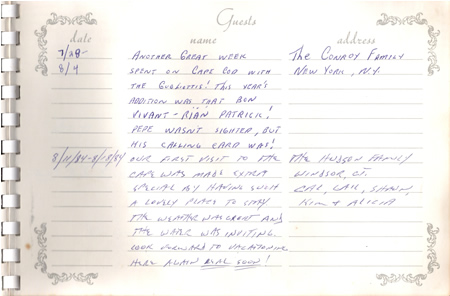 Guests
date name address
7/28- ANOTHER GREAT WEEK The CONROY FAMILY
8/4 SPENT ON CAPE COD WITH NEW YORK, N.Y.
THE GUGLIOTTIS! THIS YEAR'S
ADDITION WAS THAT BON
VIVANT - RIAN PATRICK!
PEPE WASN'T SIGHTED, BUT
HIS CALLING CARD WAS!
8/11/84-8/18/84 OUR FIRST VISIT TO THE THE HUDSON FAMILY
CAPE WAS MADE EXTRA WINDSOR, CT.
SPECIAL BY HAVING SUCH SHAWN,
A LOVELY PLACE TO STAY KIM & ALICIA
THE WEATHER WAS GREAT AND
THE WATER WAS INVITING.
LOOK FORWARD TO VACATIONING
HERE AGAIN REAL SOON!